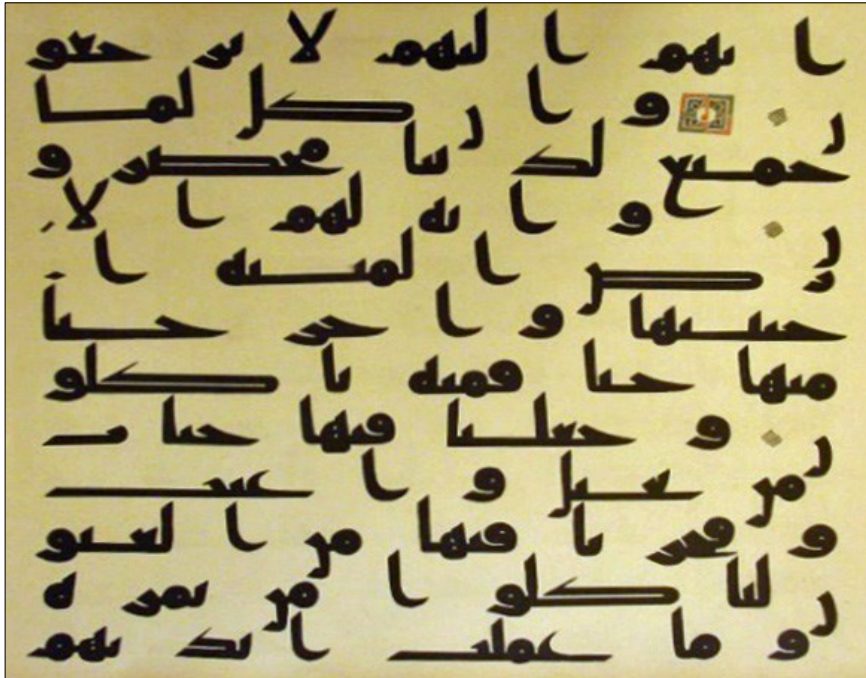 انهم اليهم لا يرجعو
ن وان كل لما
جميع لدينا محضرو
ن واية لهم الا
رض الميتة ا
حيينها واخرجنا
منها حبا فمنه ياكلو
ن وجعلنا فيها جنات
من نخيل واعنب
وفجرنا فيها من العيو
ن لياكلوا من ثمره
وما عملته ايديهم